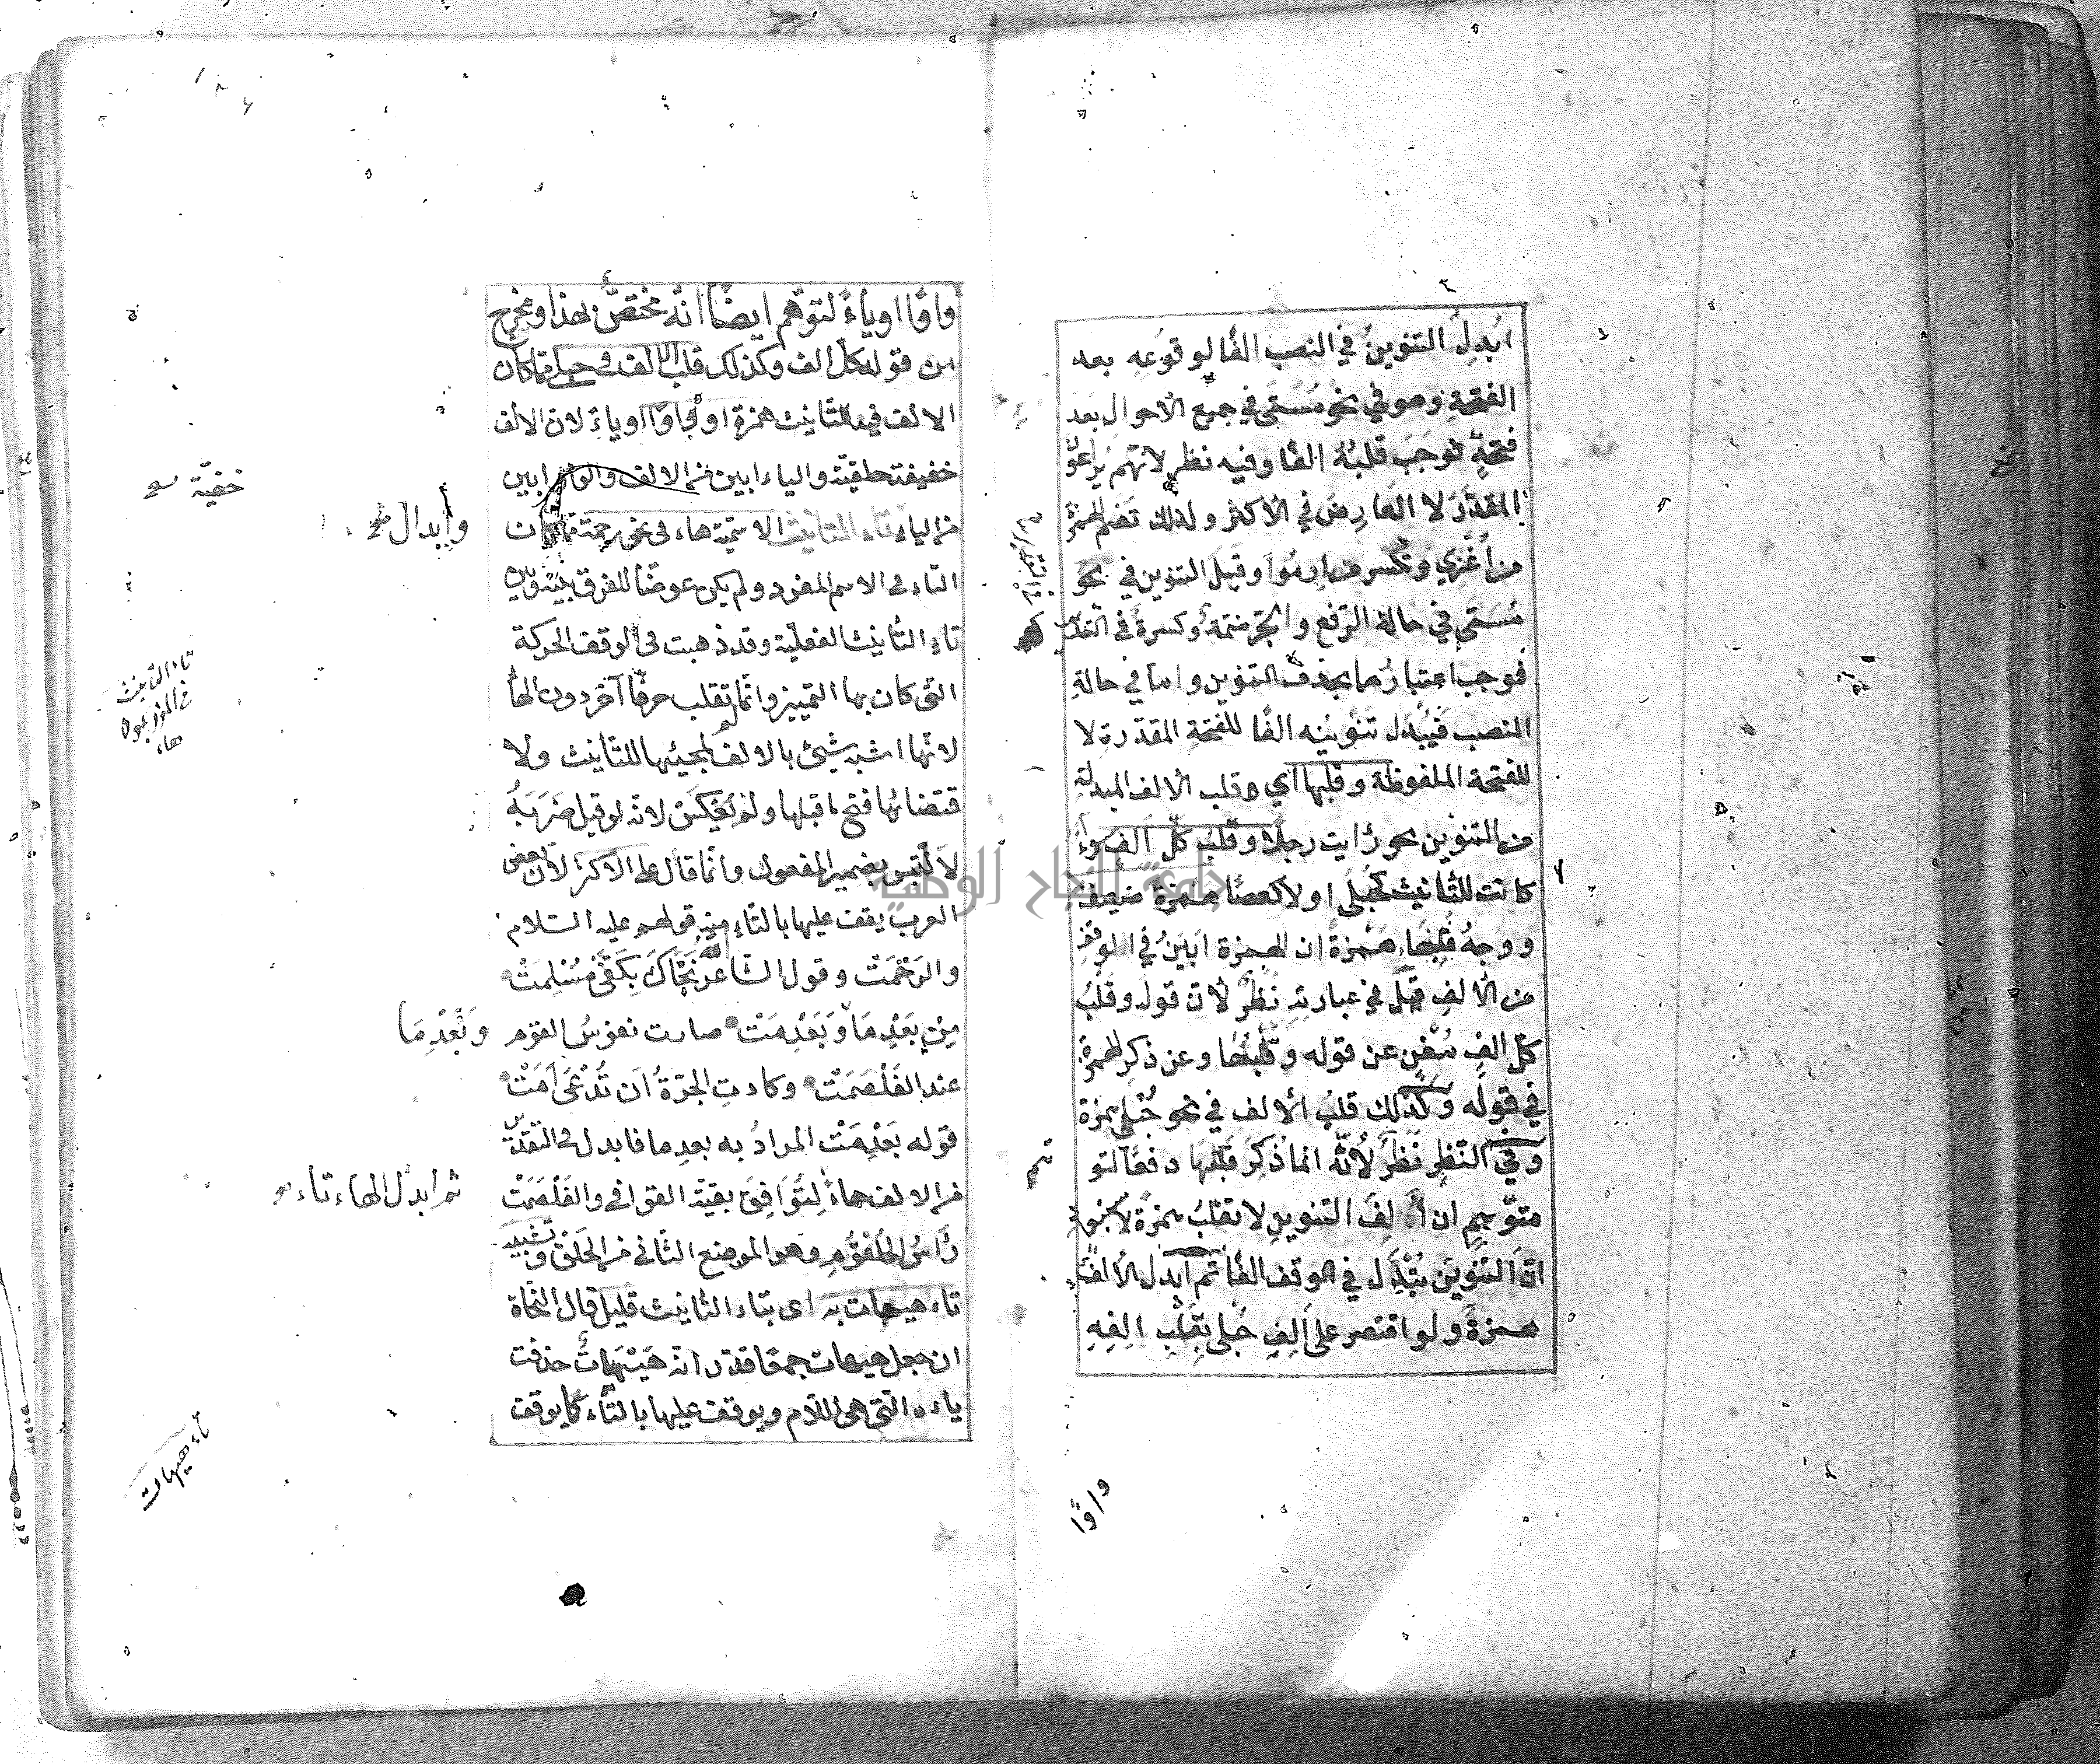 ابدل التنوين في النصب الفًا لوقوعه بعد
الفتحةِ وهو في نحو مُسَمًّى في جميع الاحوال بعد
فتحةٍ فوجَبَ قلبُهُ الفًا وفيه نظر لانهم يُراعون
المقدّرَ لا العارِضَ في الاكثر ولذلك تضم الهمزة
من اُغْزِي وتكسر في اِرمُوا وقيل التنوين في نحو
مُسَمًّى في حالة الرفع والجر ضمة وكسرة في التقدير
فوجب اعتبارُهما بحذف التنوين واما في حالةِ
النصب فيُبْدَل تنوينه الفًا للفتحة المقدّرة لا
للفتحة الملفوظة وقلبها اي وقلب الالف المبدلة
من التنوين نحو رأيت رجلًا وقلبُ كلّ الفٍ سواءً
كانت للتأنيث كحُبلى او لا كعصا همزة ضعيفٌ
ووجهُ قلبها همزةً ان الهمزة ابْيَنُ في الوقف
من الالفِ قيل في عبارتهِ نظرٌ لان قوله وقلبُ
كل الفٍ مُغْنٍ عن قوله وقلبُها وعن ذكر الهمزة
في قوله وكذلك قلبُ الالف في نحو حُبْلى همزة
وفي النّظرِ نَظَرٌ لأنّه انما ذكر قلبها دفعًا لتو
متوّهمٍ ان الفَ التنوينِ لا تقلبُ همزةً
انّ التنوينَ يُبْدَل في الوقف الفًا ثم ابدل الالفُ
همزةً ولو اقتصر على اَلِفِ حُبْلى بِقَلْبِ الِفِهِ
واوًا
واوًا او ياءً لتوهّم ايضًا انّه مختصٌّ بهذا ومخرج
من قوله كل الف وكذلك قلب الالف في حبلى مما كان
الالف فيه للتأنيث همزة او واوًا او ياءً لان الالف
خفيفة حلقيّة والياء ابين من الالف والواو ابين
من الياء تاء التأنيث الاسمية هاء في نحو رحمة مما كان
التاء في الاسم المفرد ولم يكن عوضًا للفرق بينه وبين
تاء التأنيث الفعلية وقد ذهبت في الوقف الحركة
التي كان بها التمييز وانّما تقلب حرفًا آخر دون الهاء
لانّها اشبه شيئ بالالف لمجيئها للتأنيث ولا
قتضائها فتح ما قبلها ولم يُعْكَسْ لانّه لو قيل ضَرَبَهُ
لالتبس بضمير المفعول وانّما قال على الاكثر لان بعض
العرب يقف عليها بالتاء منه قولهم عليه السلام
والرَحْمَتْ وقول الشاعر اللهُ نَجَّاكَ بِكَفَّيْ مُسْلِمَتْ
مِنْ بَعْدِ مَا وَبَعْدِمَتْ صارت نفوسُ القوم
عند الغَلْصَمَتْ وكادتِ الحرّةُ اَن تُدْعَى اَمَتْ
قوله بَعْدِمَتْ المرادُ به بعدِ ما فابدل في التقدير
من الالف هاءً لِتُوَافِقَ بقيّة القوافي والغَلْصَمَتْ
رَأسُ الحُلْقُومِ وهو الموضع الثاني من الحَلْقِ وتشبيه
تاء هيهات به اى بتاء التأنيث قليل قال النحاة
ان جعل هيهات جمعًا قدّر انّه هَيْهَيَاتٌ حذفت
ياءه التي هي اللّام ويوقف عليها بالتّاء كما يوقف
خفيّة
وابدال
تاء التأنيث
هاء
وبَعْدِ مَا
ثم ابدل الهاء تاء
تاء هيهات
جامعة النجاح الوطنية